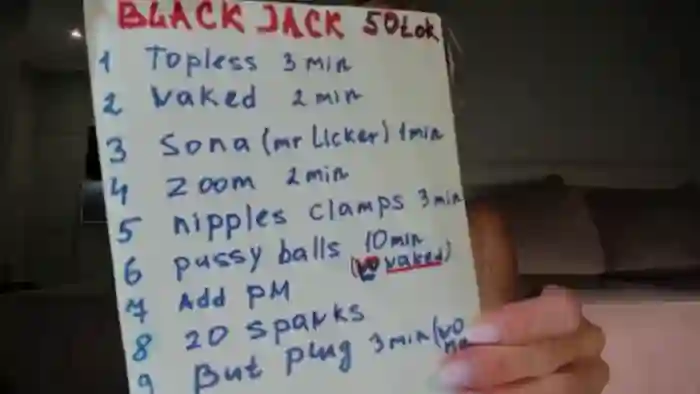 BLACK JACK 50tok
1 Topless 3 min
2 vaked 2 min
3 Sona (mr Licker) 1min
4 Zoom 2min
5 nipples clamps 3min
6 pussy balls 10min
(vaked)
7 Add PM
8 20 sparks
9 But plug 3min (